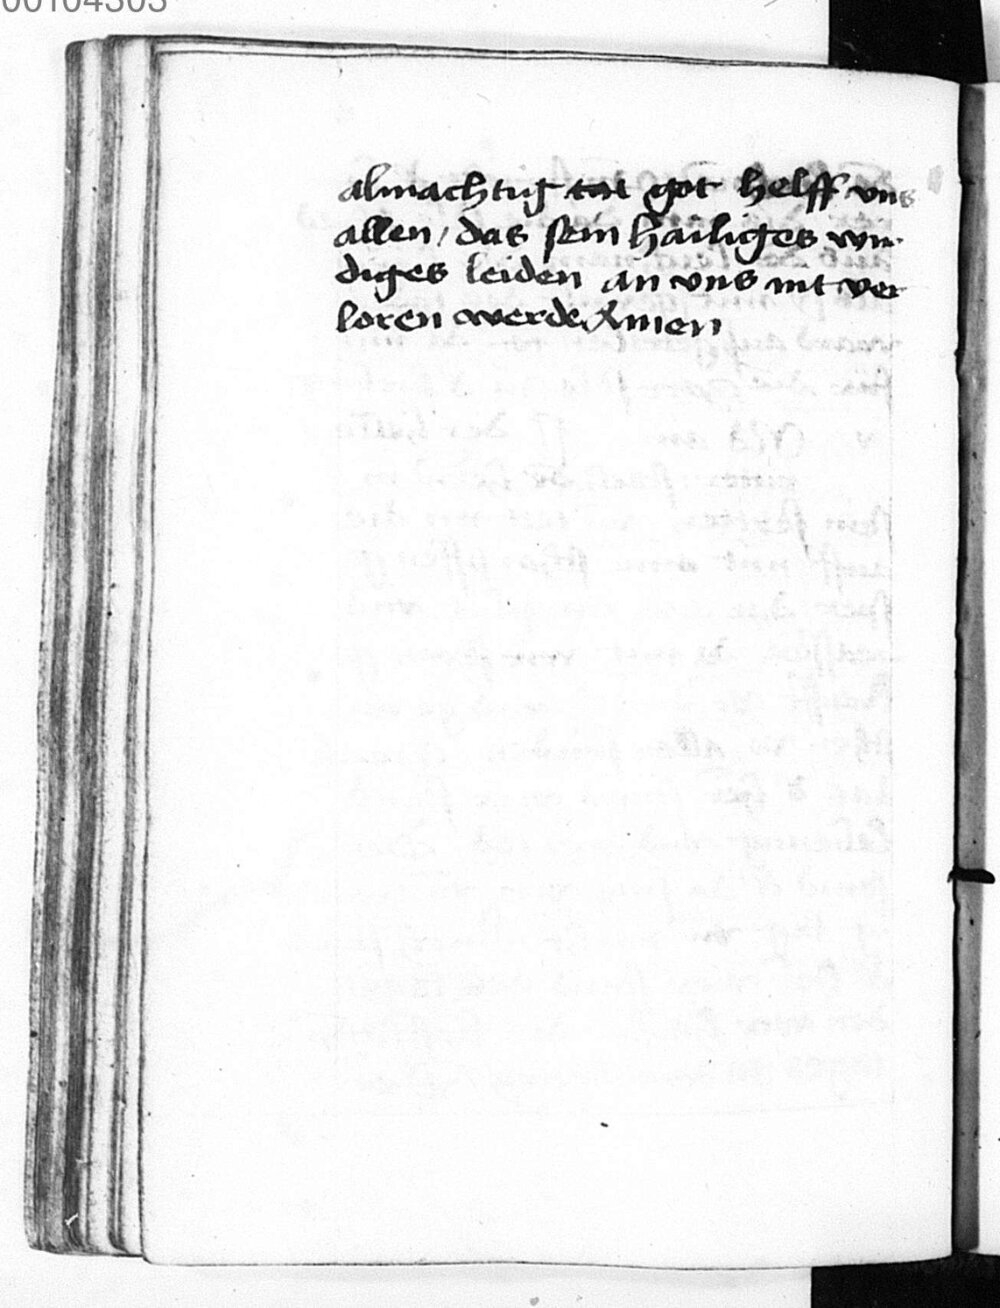 00104303
almachtig got helff vns
allen / das sein hailiges wir
diges leiden an vns nit ver
loren werde Amen